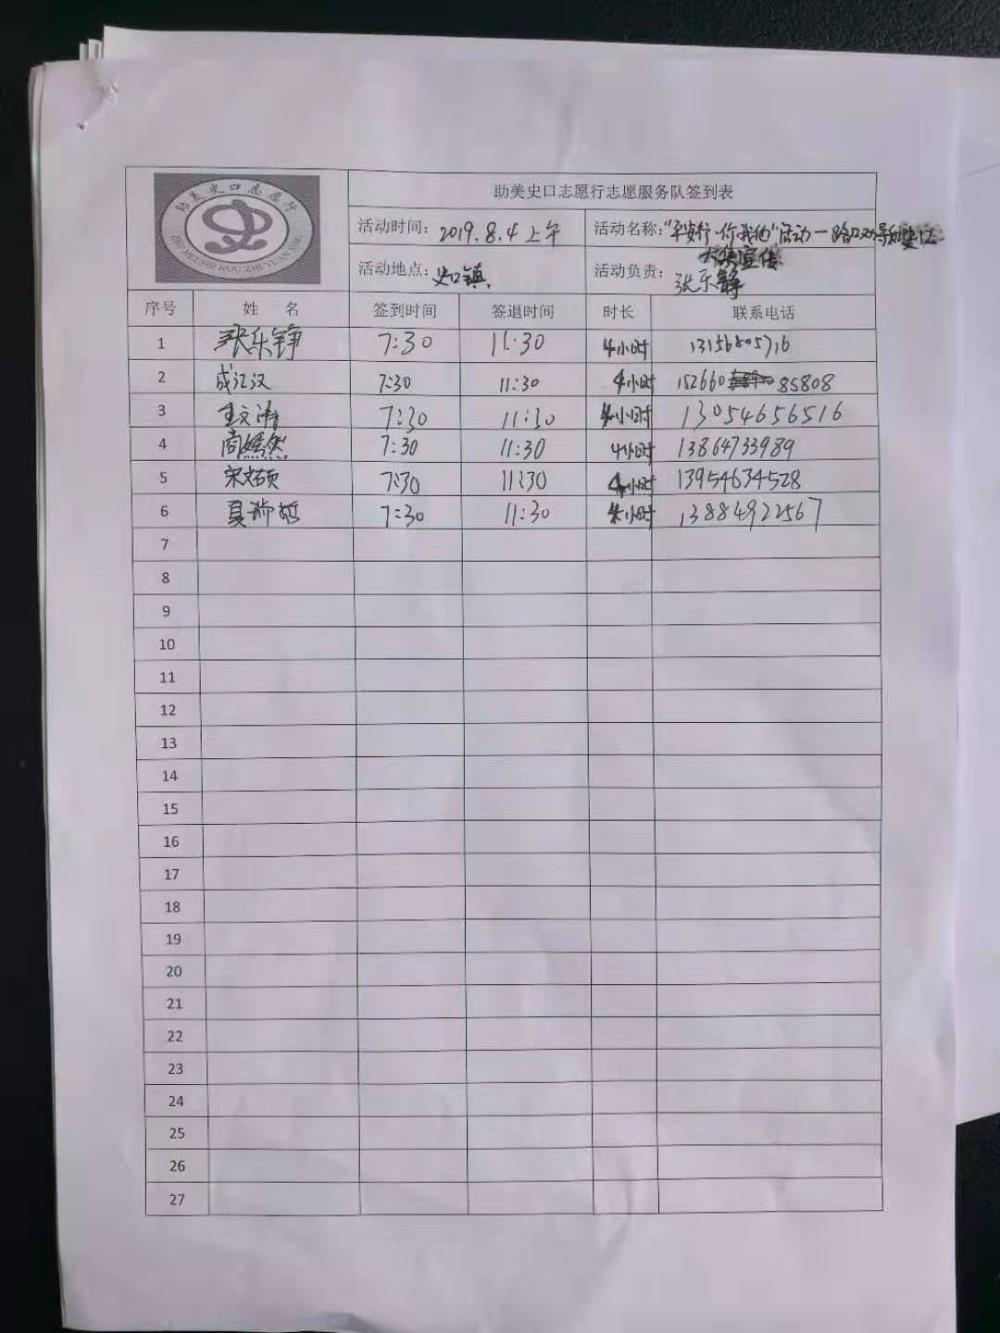 助美史口志愿行
ZHU MEI SHI KOU ZHI YUAN XING
助美史口志愿行志愿服务队签到表
活动时间：2019.8.4上午
活动名称："平安行·你我他"活动一路口劝导和整
宣传
活动地点：史口镇
活动负责：张乐
序号 姓 名 签到时间 签退时间 时长 联系电话
1 张乐铮 7:30 11:30 4小时 13156805716
2 成江汉 7:30 11:30 4小时 152660 85808
3 王文涛 7:30 11:30 4小时 13054656516
4 尚嫣然 7:30 11:30 4小时 13864733989
5 宋文硕 7:30 11:30 4小时 13954634528
6 夏 哲 7:30 11:30 4小时 13884922567
7
8
9
10
11
12
13
14
15
16
17
18
19
20
21
22
23
24
25
26
27